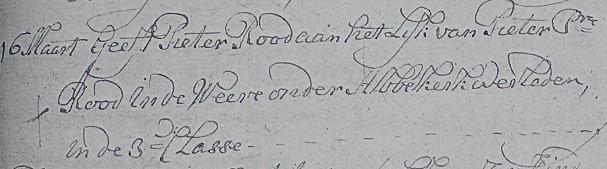 16 Maart Geeft Pieter Rood aan het Lijk van Pieter Prs
Rood in de Weere onder Abbekerk Overleden,
in de 3de Classe